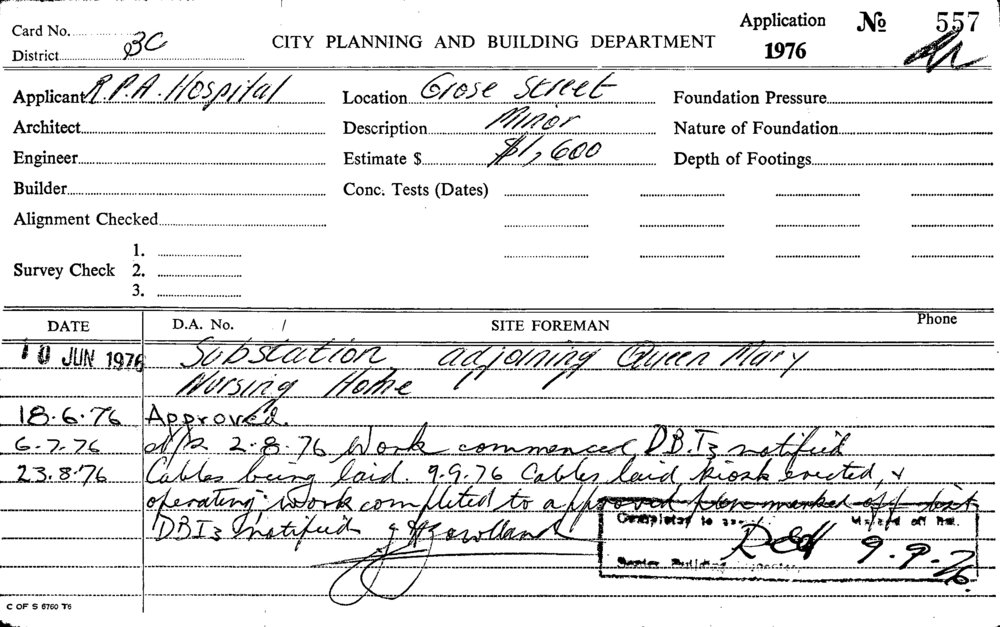 Card No.
District BC
CITY PLANNING AND BUILDING DEPARTMENT
Application No 557
1976
Applicant R.P.A. Hospital
Location Grose Street
Foundation Pressure
Architect
Description Minor
Nature of Foundation
Engineer
Estimate $ $1,600
Depth of Footings
Builder
Conc. Tests (Dates)
Alignment Checked
Survey Check
1.
2.
3.
DATE D.A. No. SITE FOREMAN Phone
10 JUN 1976 Substation adjoining Queen Mary
Nursing Home
18.6.76 Approved.
6.7.76 N/R 2.8.76 Work commenced DB.I3 notified
23.8.76 Cables being laid. 9.9.76 Cables laid kiosk erected, &
operating; work completed to approved plan marked off list
DBI3 notified
Completed to
Marked off
9.9.76
Senior Building Inspector
C OF S 6760 T6